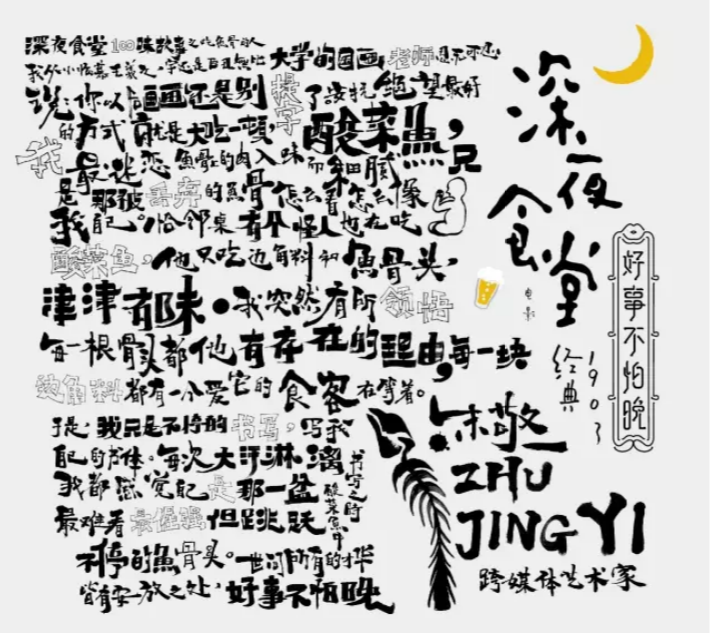 深夜食堂 100味故事之吃鱼骨的人 大学的国画老师
我从小临摹王羲之,字还是
说:你以后画画还是别 了 绝望最好
的方式就是大吃一顿,酸菜鱼,
我最迷恋鱼骨上的肉入味而细腻,只
是那被丢弃的魚骨怎么看怎么像
我自己。恰邻桌有个怪人也在吃
酸菜鱼,他只吃边角料和魚骨头,
津津有味。我突然有所领悟
每一根骨头都他有存在的理由,每一块
边角料都有一个爱它的食客在等着。
于是,我只是不停的书写,写我
自己的书体。每次大汗淋漓书写之时
我都感觉自己是那一盆酸菜魚中
最难看最倔强但跳跃
不停的魚骨头。世间所有的才华
皆有安放之处,好事不怕晚
深夜食堂
电影
经典1903
好事不怕晚
朱敬一
ZHU
JING YI
跨媒体艺术家